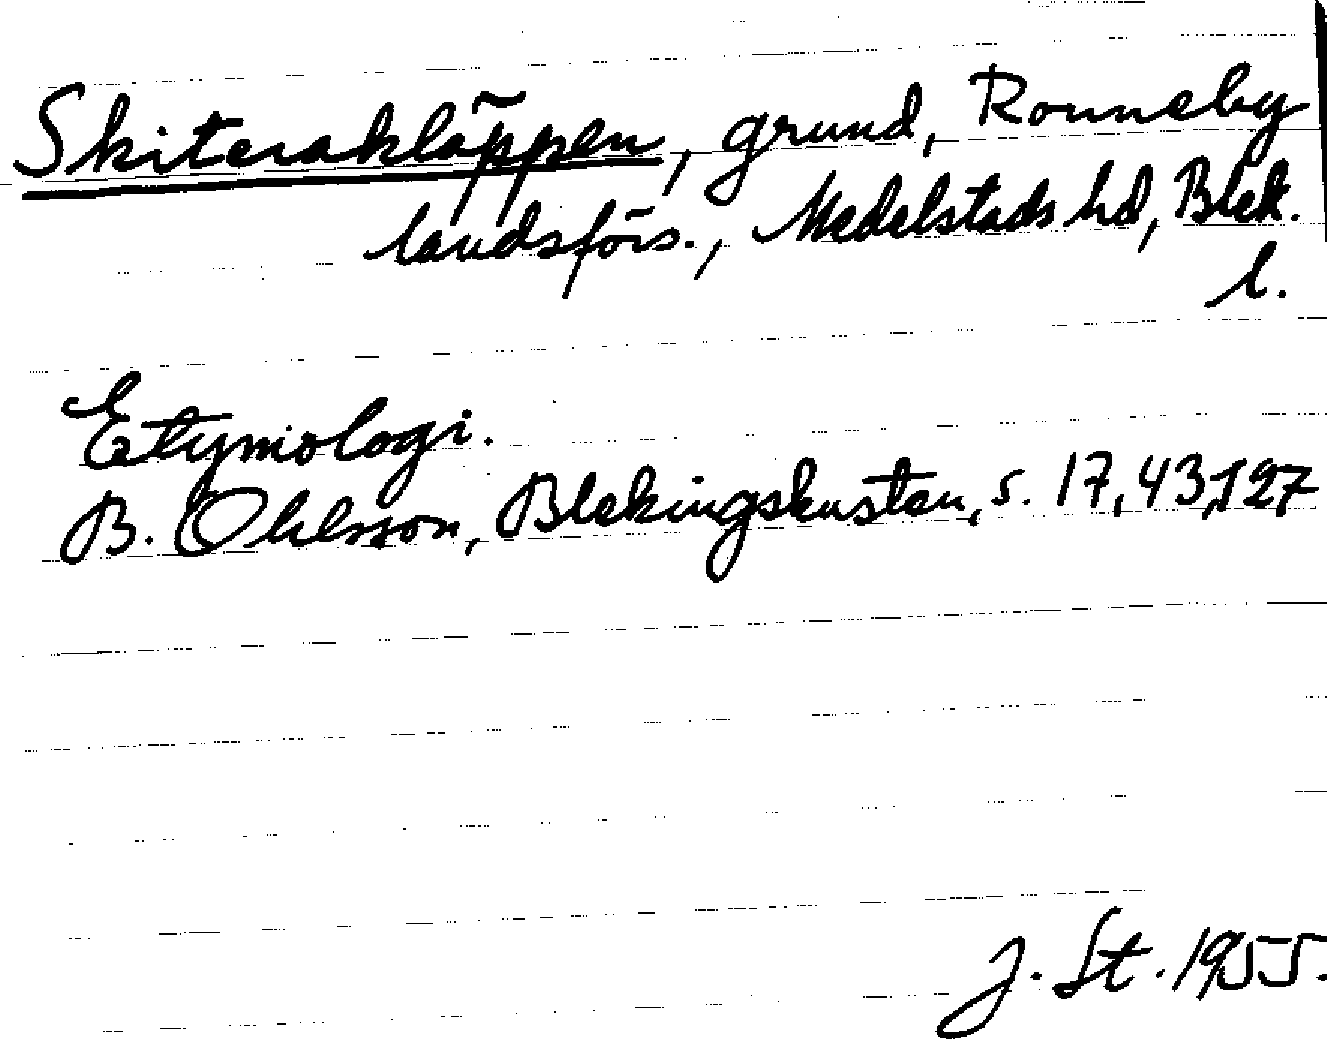 Skiterakläppen, grund, Ronneby
landsförs., Medelstads hd, Blek.
l.
Etymologi.
B. Ohlsson, Blekingskusten, s. 17, 43, 127
J. St. 1955.